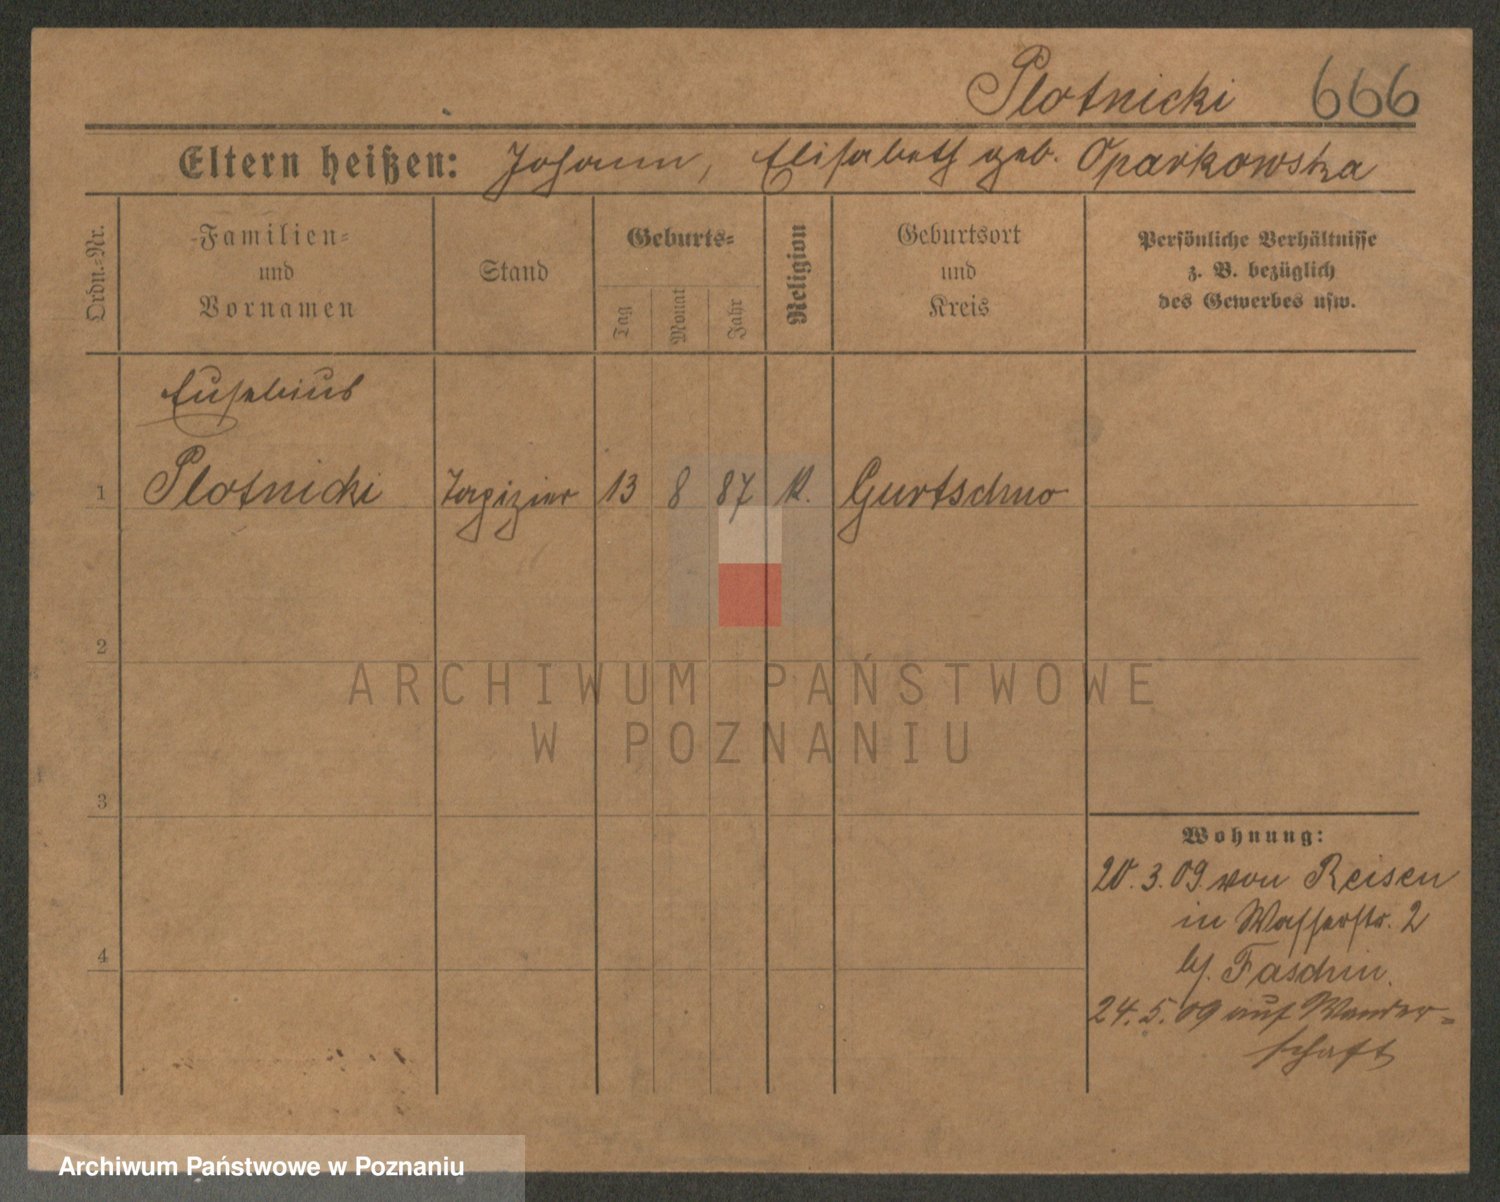 Plotnicki 666
Eltern heißen: Johann, Elisabeth geb. Oparkowska
Ordn.-Nr.
Familien-
und
Vornamen
Stand
Geburts-
Tag
Monat
Jahr
Religion
Geburtsort
und
Kreis
Persönliche Verhältnisse
z. B. bezüglich
des Gewerbes usw.
Eusebius
1 Plotnicki Tapizier 13 8 87 K. Gurtschno
2
ARCHIWUM PAŃSTWOWE
W POZNANIU
3
Wohnung:
20.3.09 von Reisen
in Wasserstr. 2
b/. Faschin.
4
24.5.09 auf Wander-
schaft
Archiwum Państwowe w Poznaniu